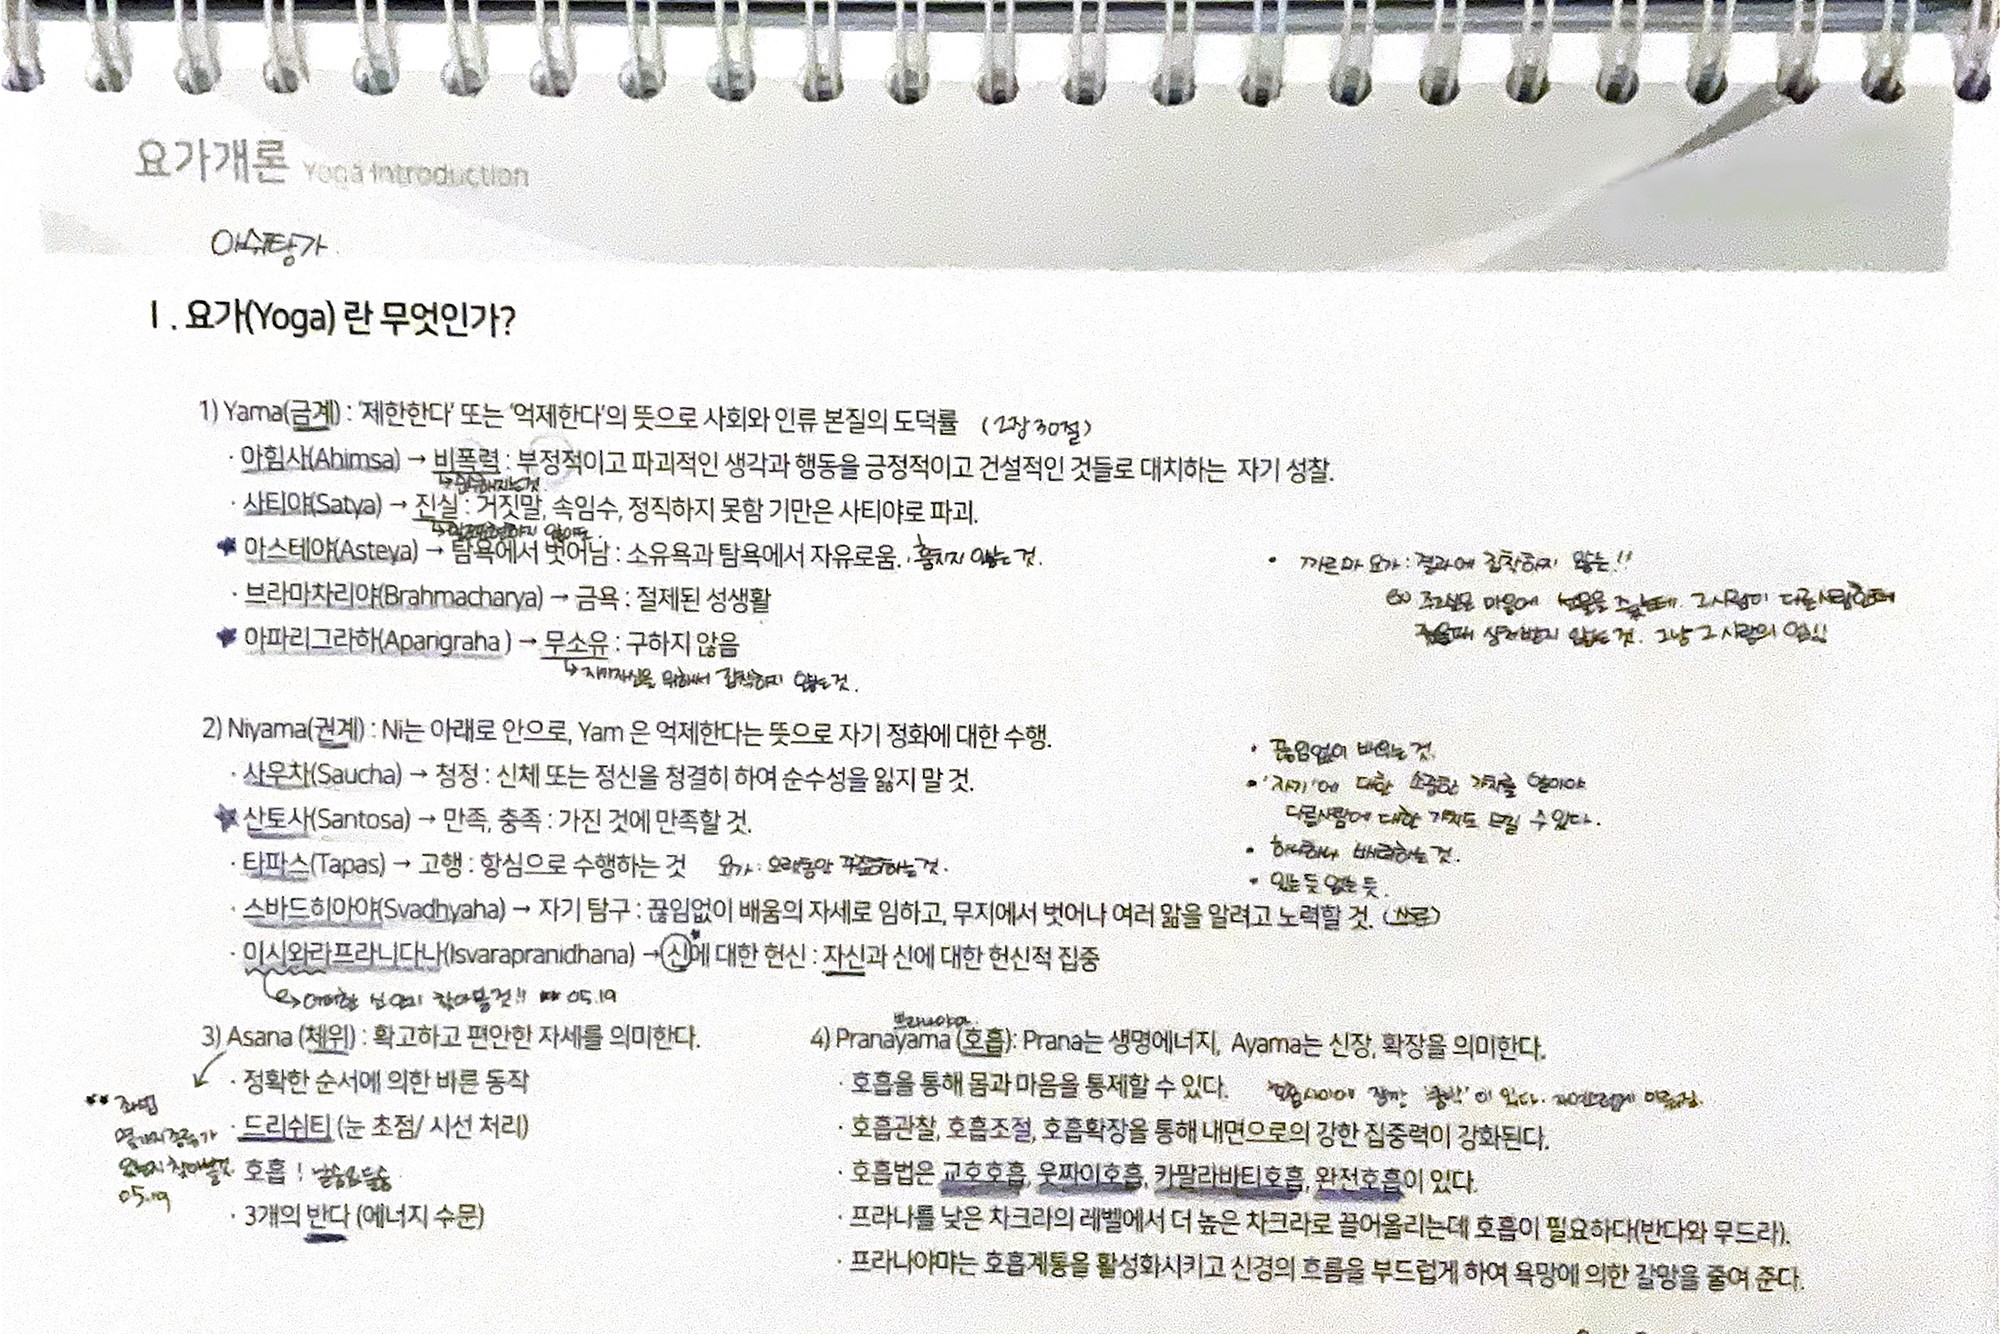 요가개론 Yoga Introduction
아쉬탕가
Ⅰ. 요가(Yoga) 란 무엇인가?
1) Yama(금계) : '제한한다' 또는 '억제한다'의 뜻으로 사회와 인류 본질의 도덕률 (2장 30절)
· 아힘사(Ahimsa) → 비폭력 : 부정적이고 파괴적인 생각과 행동을 긍정적이고 건설적인 것들로 대치하는 자기 성찰.
· 사티야(Satya) → 진실 : 거짓말, 속임수, 정직하지 못함 기만은 사티야로 파괴.
★ 아스테야(Asteya) → 탐욕에서 벗어남 : 소유욕과 탐욕에서 자유로움. 훔치지 않는 것.
· 브라마차리야(Brahmacharya) → 금욕 : 절제된 성생활
★ 아파리그라하(Aparigraha ) → 무소유 : 구하지 않음
↳ 자기자신을 위해서 집착하지 않는 것.
• 까르마 요가 : 결과에 집착하지 않는!!
주고싶은 마음에 선물을 줬는데. 그사람이 다른사람한테
줬을때 상처받지 않는 것. 그냥 그 사람의 업!!
2) Niyama(권계) : Ni는 아래로 안으로, Yam 은 억제한다는 뜻으로 자기 정화에 대한 수행.
· 사우차(Saucha) → 청정 : 신체 또는 정신을 청결히 하여 순수성을 잃지 말 것.
★ 산토사(Santosa) → 만족, 충족 : 가진 것에 만족할 것.
· 타파스(Tapas) → 고행 : 항심으로 수행하는 것 요가 : 오랫동안 꾸준히하는 것.
· 스바드히아야(Svadhyaha) → 자기 탐구 : 끊임없이 배움의 자세로 임하고, 무지에서 벗어나 여러 앎을 알려고 노력할 것.
· 이시와라프라니다나(Isvarapranidhana) → 신에 대한 헌신 : 자신과 신에 대한 헌신적 집중
↳ 어떠한 신인지 찾아볼것!! ★★ 05.19
• 끊임없이 배우는 것.
• '자기'에 대한 소중한 가치를 알아야
다른사람에 대한 가치도 느낄 수 있다.
• 하나하나 버리는 것.
• 있는 듯 없는 듯.
3) Asana (체위) : 확고하고 편안한 자세를 의미한다.
· 정확한 순서에 의한 바른 동작
· 드리쉬티 (눈 초점/ 시선 처리)
· 호흡 : 날숨과 들숨
· 3개의 반다 (에너지 수문)
★★ 좌법
찾아볼것.
05.19
쁘라나야마
4) Pranayama (호흡): Prana는 생명에너지, Ayama는 신장, 확장을 의미한다.
· 호흡을 통해 몸과 마음을 통제할 수 있다. 호흡사이에 잠깐 이 있다. 자연스럽게
· 호흡관찰, 호흡조절, 호흡확장을 통해 내면으로의 강한 집중력이 강화된다.
· 호흡법은 교호호흡, 웃짜이호흡, 카팔라바티호흡, 완전호흡이 있다.
· 프라나를 낮은 차크라의 레벨에서 더 높은 차크라로 끌어올리는데 호흡이 필요하다(반다와 무드라).
· 프라나야마는 호흡계통을 활성화시키고 신경의 흐름을 부드럽게 하여 욕망에 의한 갈망을 줄여 준다.